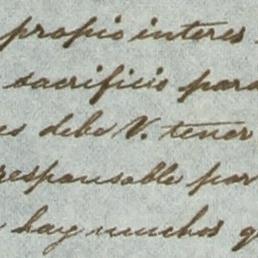 propio interes
sacrificio para
es debe V. tener
responsable por
hay muchos q